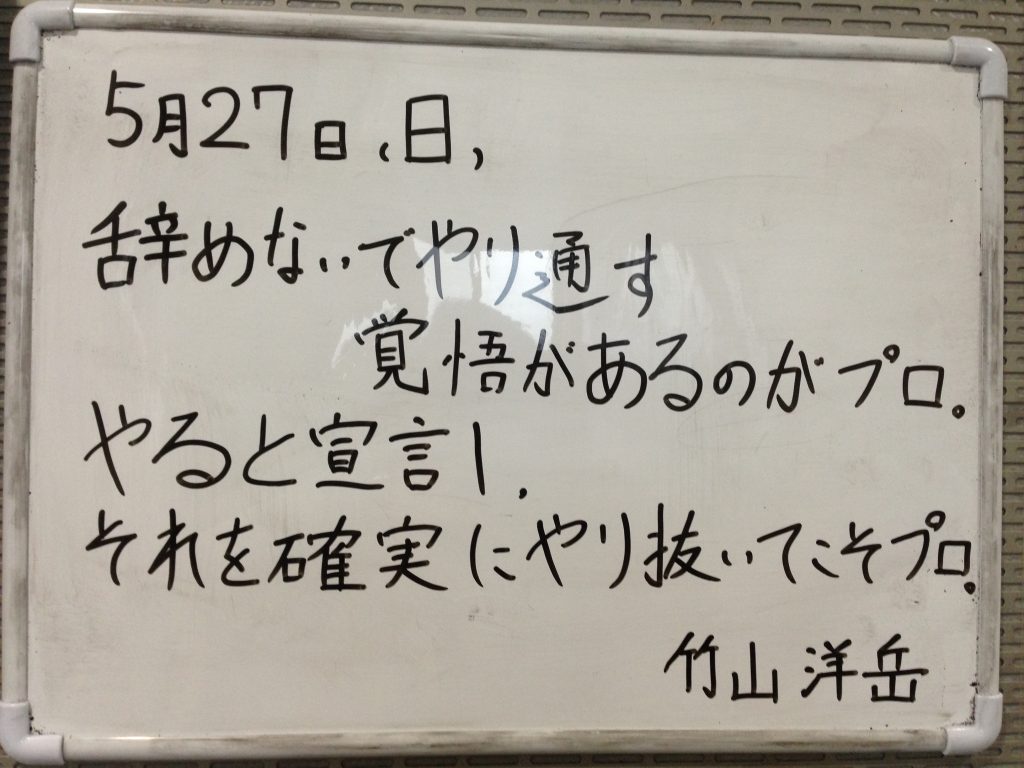 5月27日(日)
辞めないでやり通す
覚悟があるのがプロ。
やると宣言し、
それを確実にやり抜いてこそプロ。
竹山洋岳